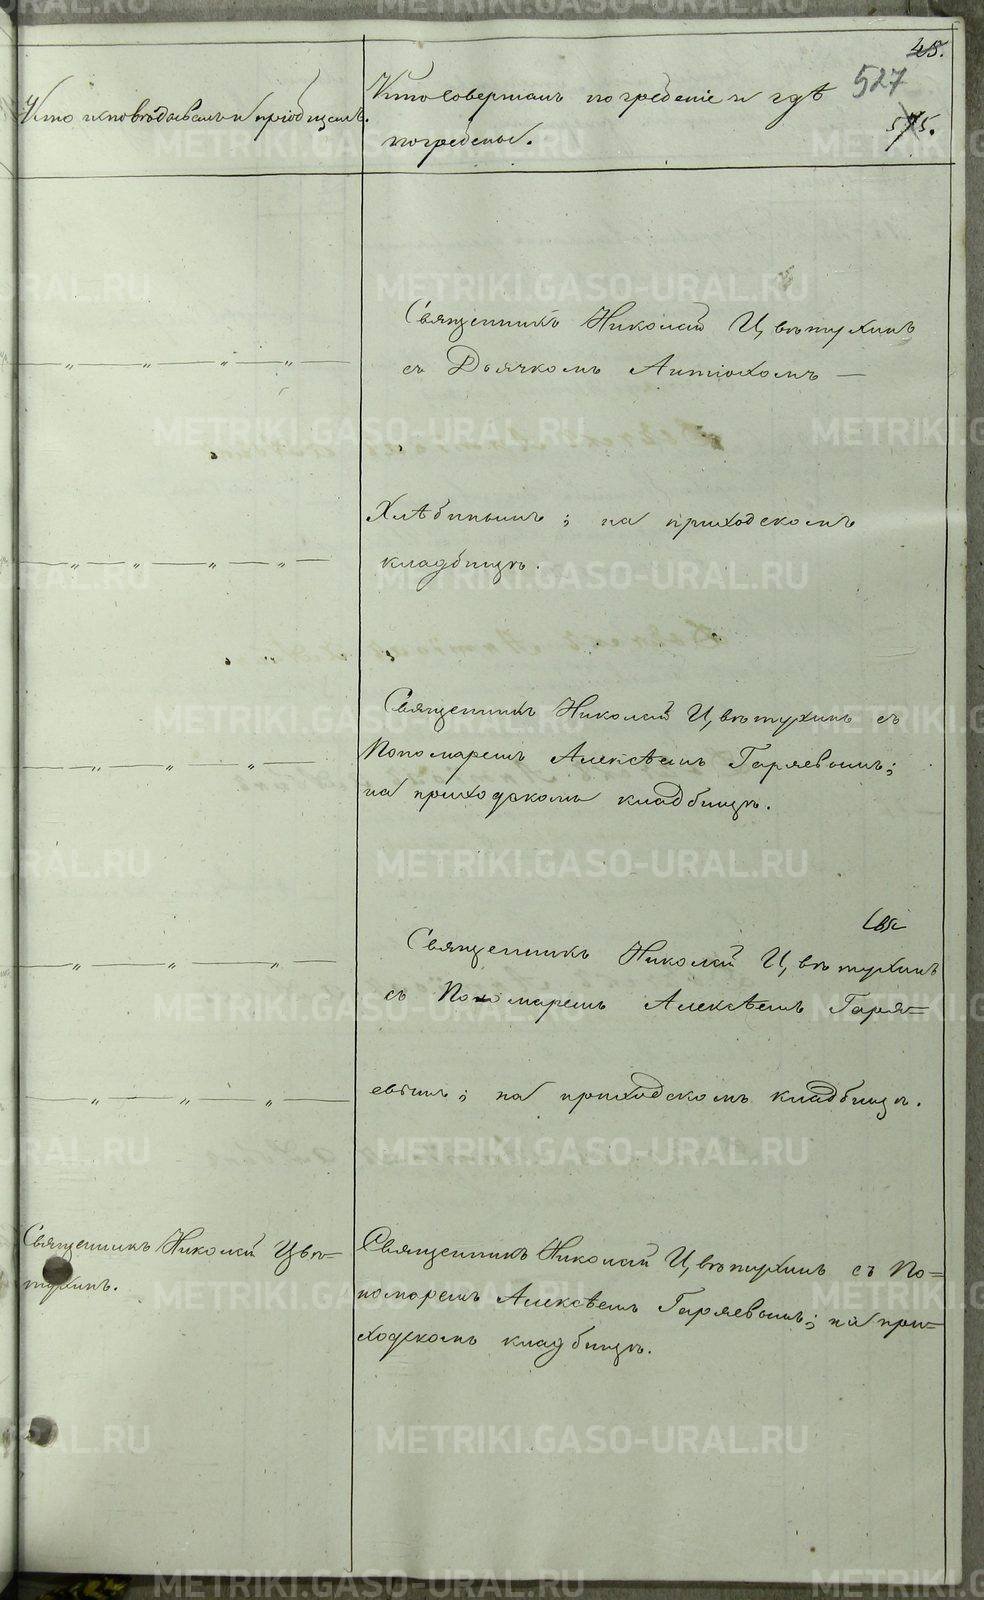 48.
527
575.
Кто исповѣдывалъ и пріобщалъ.
Кто совершалъ погребеніе и гдѣ
погребены.
Священникъ Николай Цвѣтухинъ
съ Дьячкомъ Антіохомъ —
Хлѣбинымъ; на приходскомъ
кладбищѣ.
Священникъ Николай Цвѣтухинъ съ
Пономаремъ Алексѣемъ Гаряевымъ;
на приходскомъ кладбищѣ.
Священникъ Николай Цвѣтухинъ
съ Пономаремъ Алексѣемъ Гаря=
евымъ; на приходскомъ кладбищѣ.
Священникъ Николай Цвѣ=
тухинъ.
Священникъ Николай Цвѣтухинъ съ По=
номаремъ Алексѣемъ Гаряевымъ; на при=
ходскомъ кладбищѣ.
METRIKI.GASO-URAL.RU